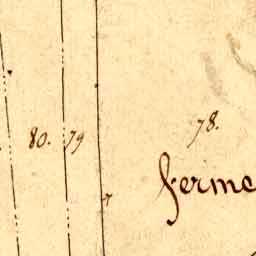 78.
80. 79
ferme